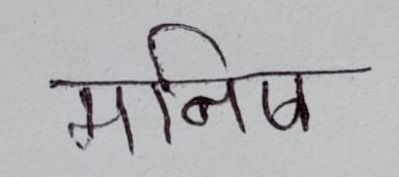 मनिष